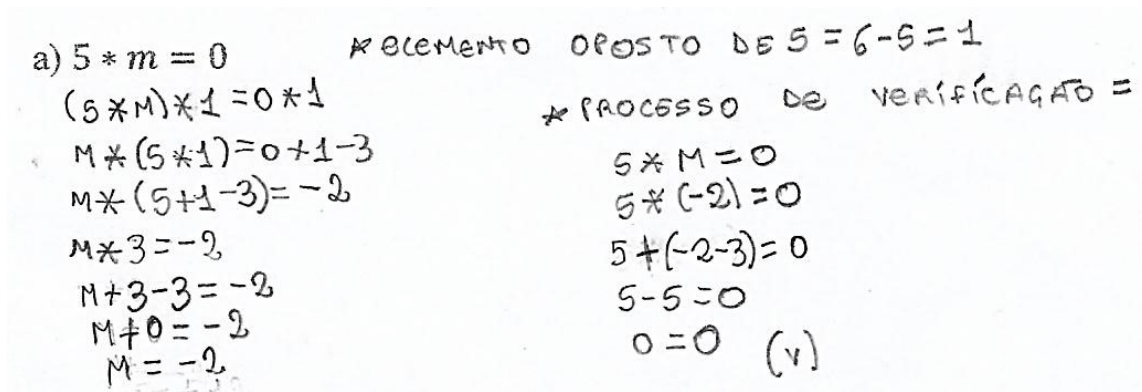 a) 5 * m = 0
(5*M)*1=0*1
M*(5*1)=0+1-3
M*(5+1-3)=-2
M*3=-2
M+3-3=-2
M+0=-2
M=-2
*ELEMENTO OPOSTO DE 5=6-5=1
*PROCESSO DE VERIFICAÇÃO =
5*M=0
5*(-2)=0
5+(-2-3)=0
5-5=0
0=0 (V)